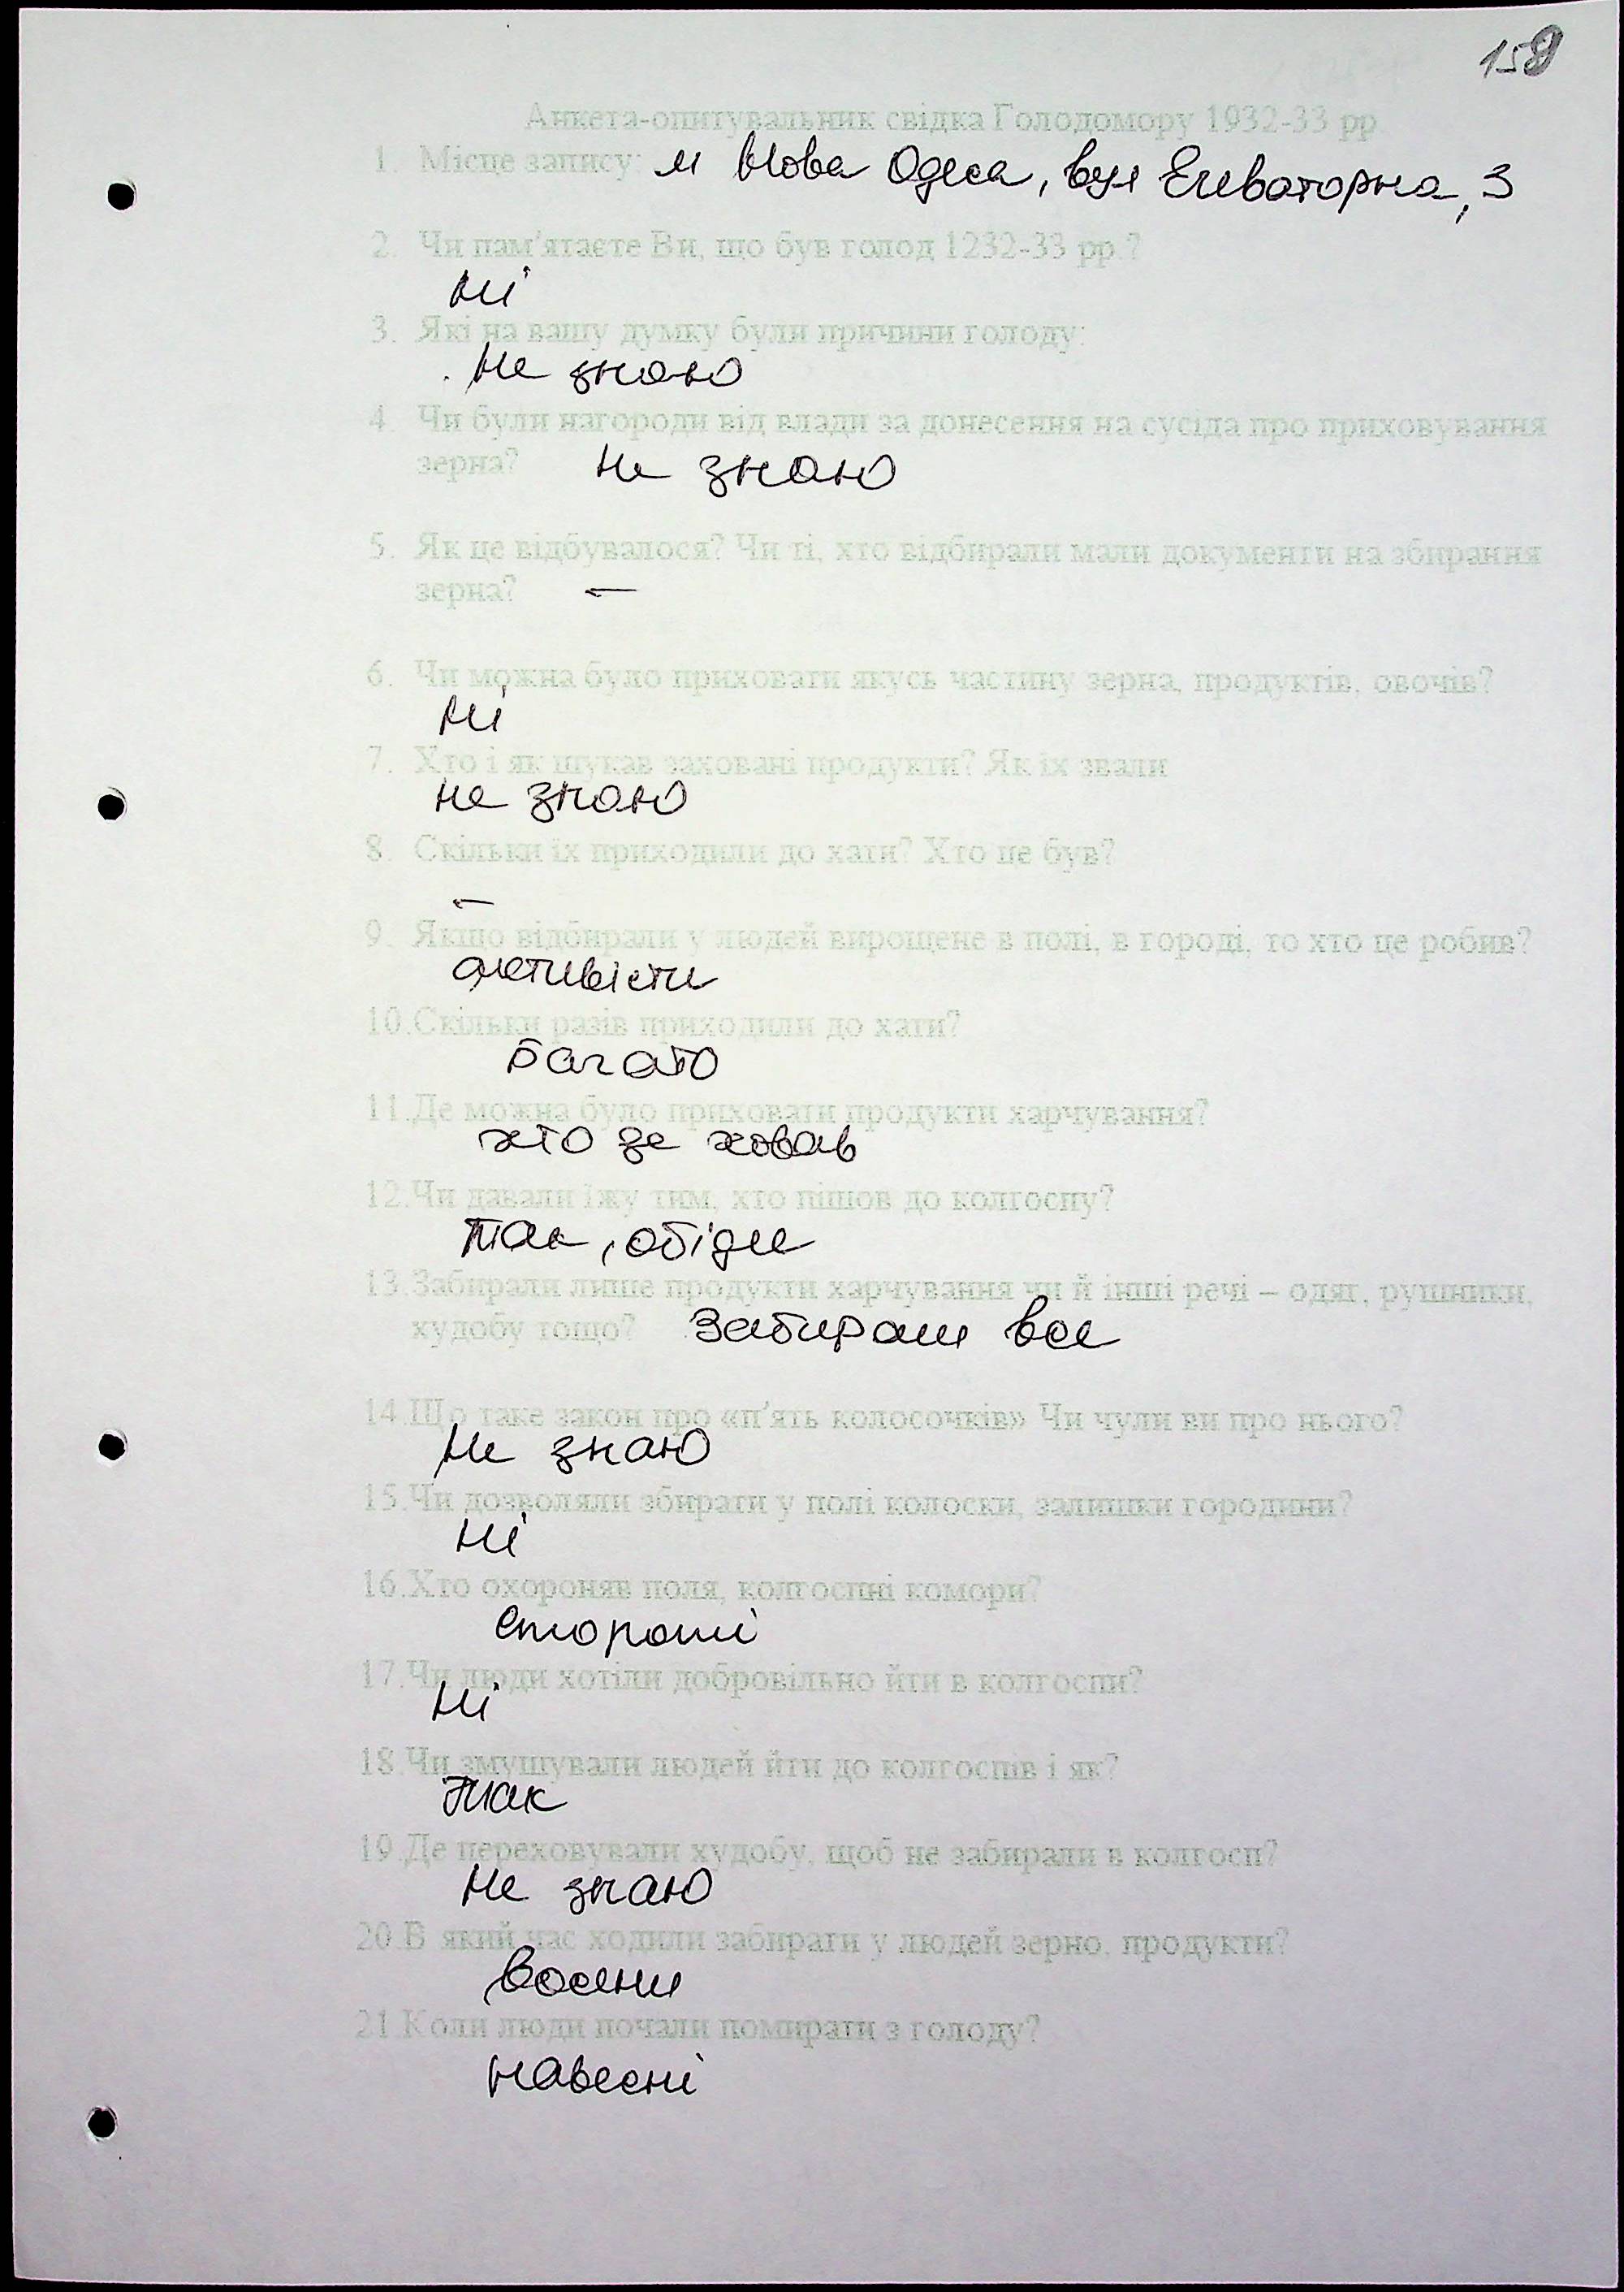 159
Анкета-опитувальник свідка Голодомору 1932-33 рр.
1. Місце запису: м Нова Одеса, вул Елеваторна, 3
2. Чи пам'ятаєте Ви, що був голод 1232-33 рр.?
Ні
3. Які на вашу думку були причини голоду:
Не знаю
4. Чи були нагороди від влади за донесення на сусіда про приховування
зерна? не знаю
5. Як це відбувалося? Чи ті, хто відбирали мали документи на збирання
зерна? –
6. Чи можна було приховати якусь частину зерна, продуктів, овочів?
Ні
7. Хто і як шукав заховані продукти? Як їх звали
не знаю
8. Скільки їх приходили до хати? Хто це був?
–
9. Якщо відбирали у людей вирощене в полі, в городі, то хто це робив?
активісти
10.Скільки разів приходили до хати?
багато
11.Де можна було приховати продукти харчування?
хто де ховав
12.Чи давали їжу тим, хто пішов до колгоспу?
так, обіди
13.Забирали лише продукти харчування чи й інші речі – одяг, рушники,
худобу тощо? Забирали все
14.Що таке закон про «п'ять колосочків» Чи чули ви про нього?
Не знаю
15.Чи дозволяли збирати у полі колоски, залишки городини?
Ні
16.Хто охороняв поля, колгоспні комори?
сторожі
17.Чи люди хотіли добровільно йти в колгоспи?
Ні
18.Чи змушували людей йти до колгоспів і як?
Так
19.Де переховували худобу, щоб не забирали в колгосп?
Не знаю
20.В який час ходили забирати у людей зерно, продукти?
Восени
21.Коли люди почали помирати з голоду?
навесні